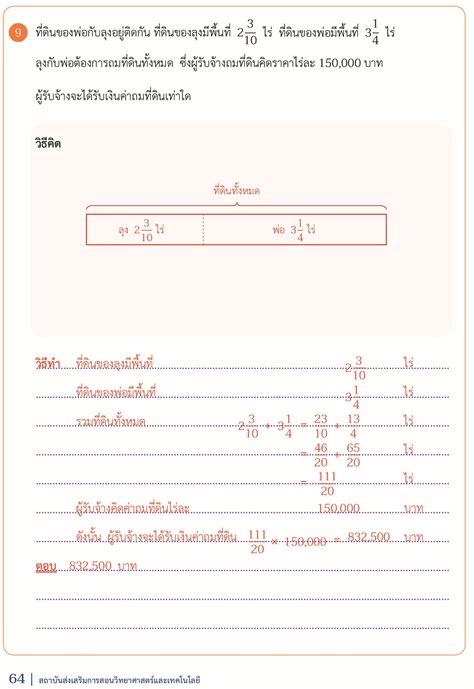 9 ที่ดินของพ่อกับลุงอยู่ติดกัน ที่ดินของลุงมีพื้นที่ 2 3/10 ไร่ ที่ดินของพ่อมีพื้นที่ 3 1/4 ไร่
ลุงกับพ่อต้องการถมที่ดินทั้งหมด ซึ่งผู้รับจ้างถมที่ดินคิดราคาไร่ละ 150,000 บาท
ผู้รับจ้างจะได้รับเงินค่าถมที่ดินเท่าใด
วิธีคิด
ที่ดินทั้งหมด
ลุง 2 3/10 ไร่ พ่อ 3 1/4 ไร่
วิธีทำ ที่ดินของลุงมีพื้นที่ 2 3/10 ไร่
ที่ดินของพ่อมีพื้นที่ 3 1/4 ไร่
รวมที่ดินทั้งหมด 2 3/10 + 3 1/4 = 23/10 + 13/4 ไร่
= 46/20 + 65/20 ไร่
= 111/20 ไร่
ผู้รับจ้างคิดค่าถมที่ดินไร่ละ 150,000 บาท
ดังนั้น ผู้รับจ้างจะได้รับเงินค่าถมที่ดิน 111/20 × 150,000 = 832,500 บาท
ตอบ 832,500 บาท
64 | สถาบันส่งเสริมการสอนวิทยาศาสตร์และเทคโนโลยี